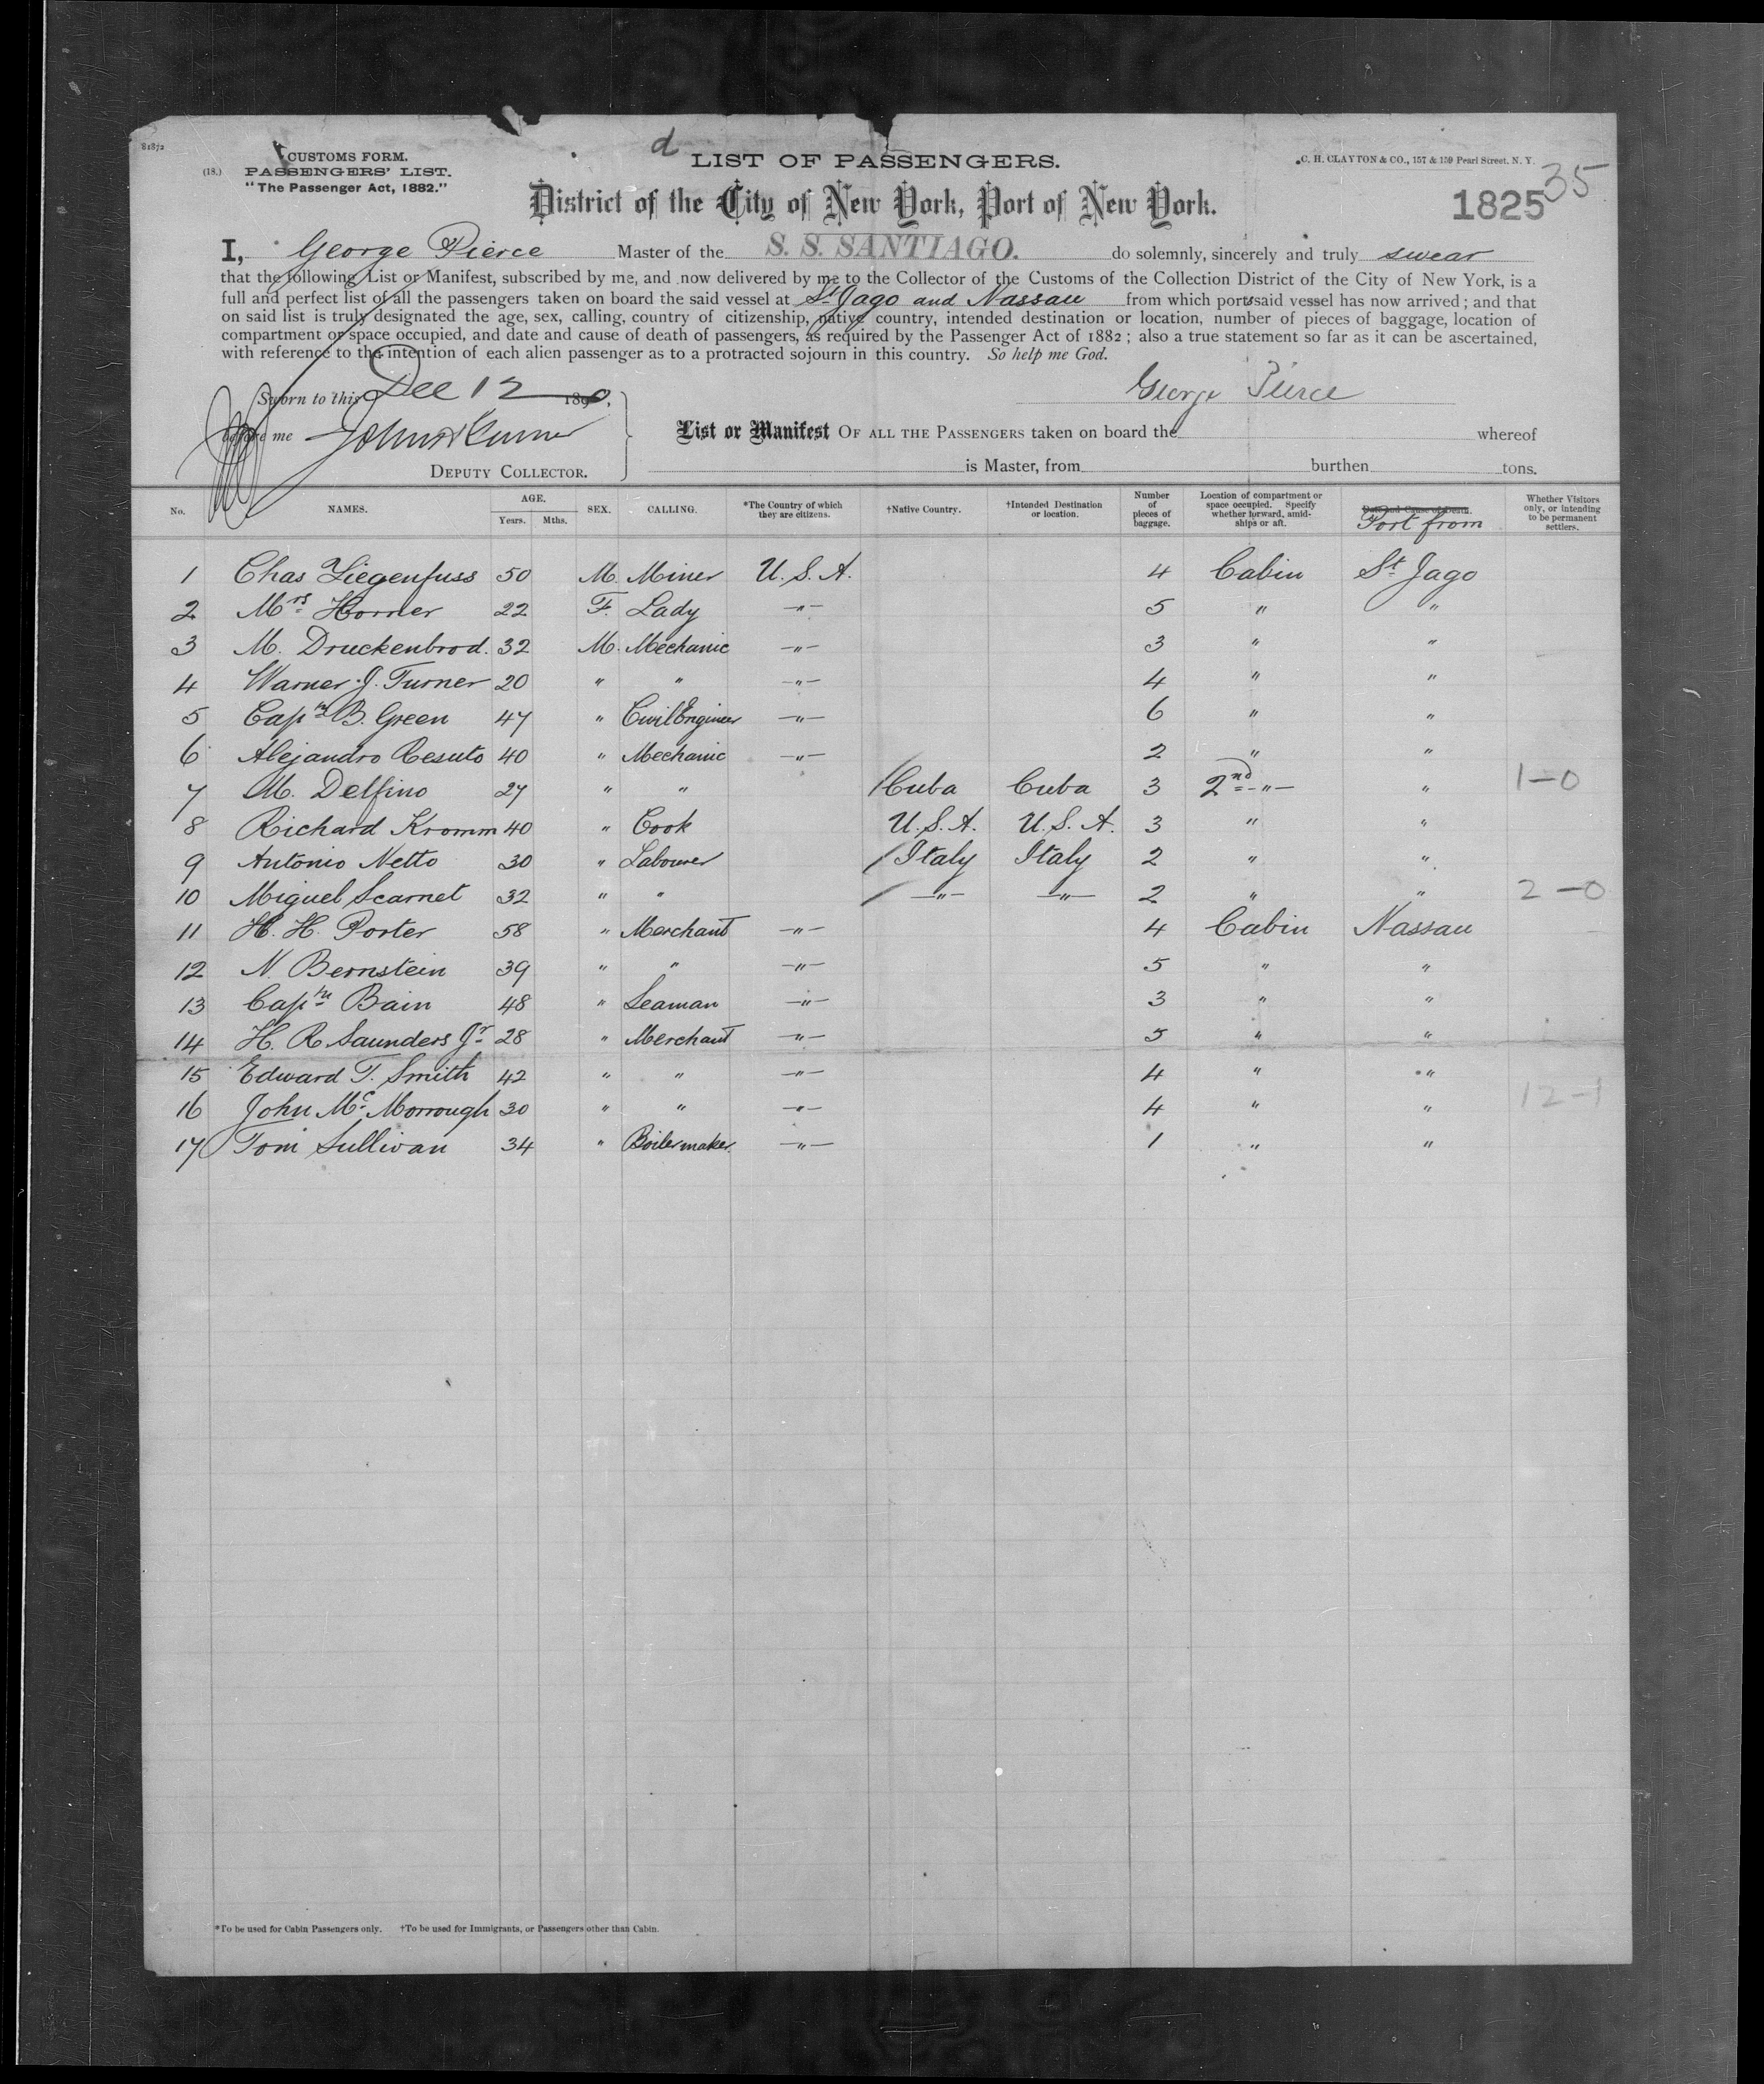 81872
(18.)
CUSTOMS FORM.
PASSENGERS' LIST.
"The Passenger Act, 1882."
d
LIST OF PASSENGERS.
C. H. CLAYTON & CO., 157 & 159 Pearl Street, N. Y.
District of the City of New York, Port of New York.
1825 35
I, George Pierce Master of the S. S. SANTIAGO. do solemnly, sincerely and truly swear
that the following List or Manifest, subscribed by me, and now delivered by me to the Collector of the Customs of the Collection District of the City of New York, is a
full and perfect list of all the passengers taken on board the said vessel at St Jago and Nassau from which ports said vessel has now arrived; and that
on said list is truly designated the age, sex, calling, country of citizenship, native country, intended destination or location, number of pieces of baggage, location of
compartment or space occupied, and date and cause of death of passengers, as required by the Passenger Act of 1882; also a true statement so far as it can be ascertained,
with reference to the intention of each alien passenger as to a protracted sojourn in this country. So help me God.
Sworn to this Dec 12 1890,
George Pierce
before me
List or Manifest OF ALL THE PASSENGERS taken on board the whereof
DEPUTY COLLECTOR.
is Master, from burthen tons.
No. NAMES. AGE. Years. Mths. SEX. CALLING. *The Country of which they are citizens. †Native Country. †Intended Destination or location. Number of pieces of baggage. Location of compartment or space occupied. Specify whether forward, amidships or aft. Date and Cause of Death. Port from Whether Visitors only, or intending to be permanent settlers.
1 Chas Ziegenfuss 50 M. Miner U.S.A. 4 Cabin St Jago
2 Mrs Horner 22 F. Lady -"- 5 " "
3 M. Druckenbrod. 32 M. Mechanic -"- 3 " "
4 Warner J. Turner 20 " " -"- 4 " "
5 Captn B. Green 47 " Civil Engineer -"- 6 " "
6 Alejandro Cesuto 40 " Mechanic -"- 2 " "
7 M. Delfino 27 " " Cuba Cuba 3 2nd -"- " 1-0
8 Richard Kromm 40 " Cook U.S.A. U.S.A. 3 " "
9 Antonio Netto 30 " Labourer Italy Italy 2 " "
10 Miguel Scarnet 32 " " -"- -"- 2 " " 2-0
11 H. H. Porter 58 " Merchant -"- 4 Cabin Nassau
12 N. Bernstein 39 " " -"- 5 " "
13 Captn Bain 48 " Seaman -"- 3 " "
14 H. R. Saunders Jr 28 " Merchant -"- 5 " "
15 Edward T. Smith 42 " " -"- 4 " "
16 John Mc Morrough 30 " " -"- 4 " " 12-1
17 Tom Sullivan 34 " Boilermaker. -"- 1 " "
*To be used for Cabin Passengers only. †To be used for Immigrants, or Passengers other than Cabin.